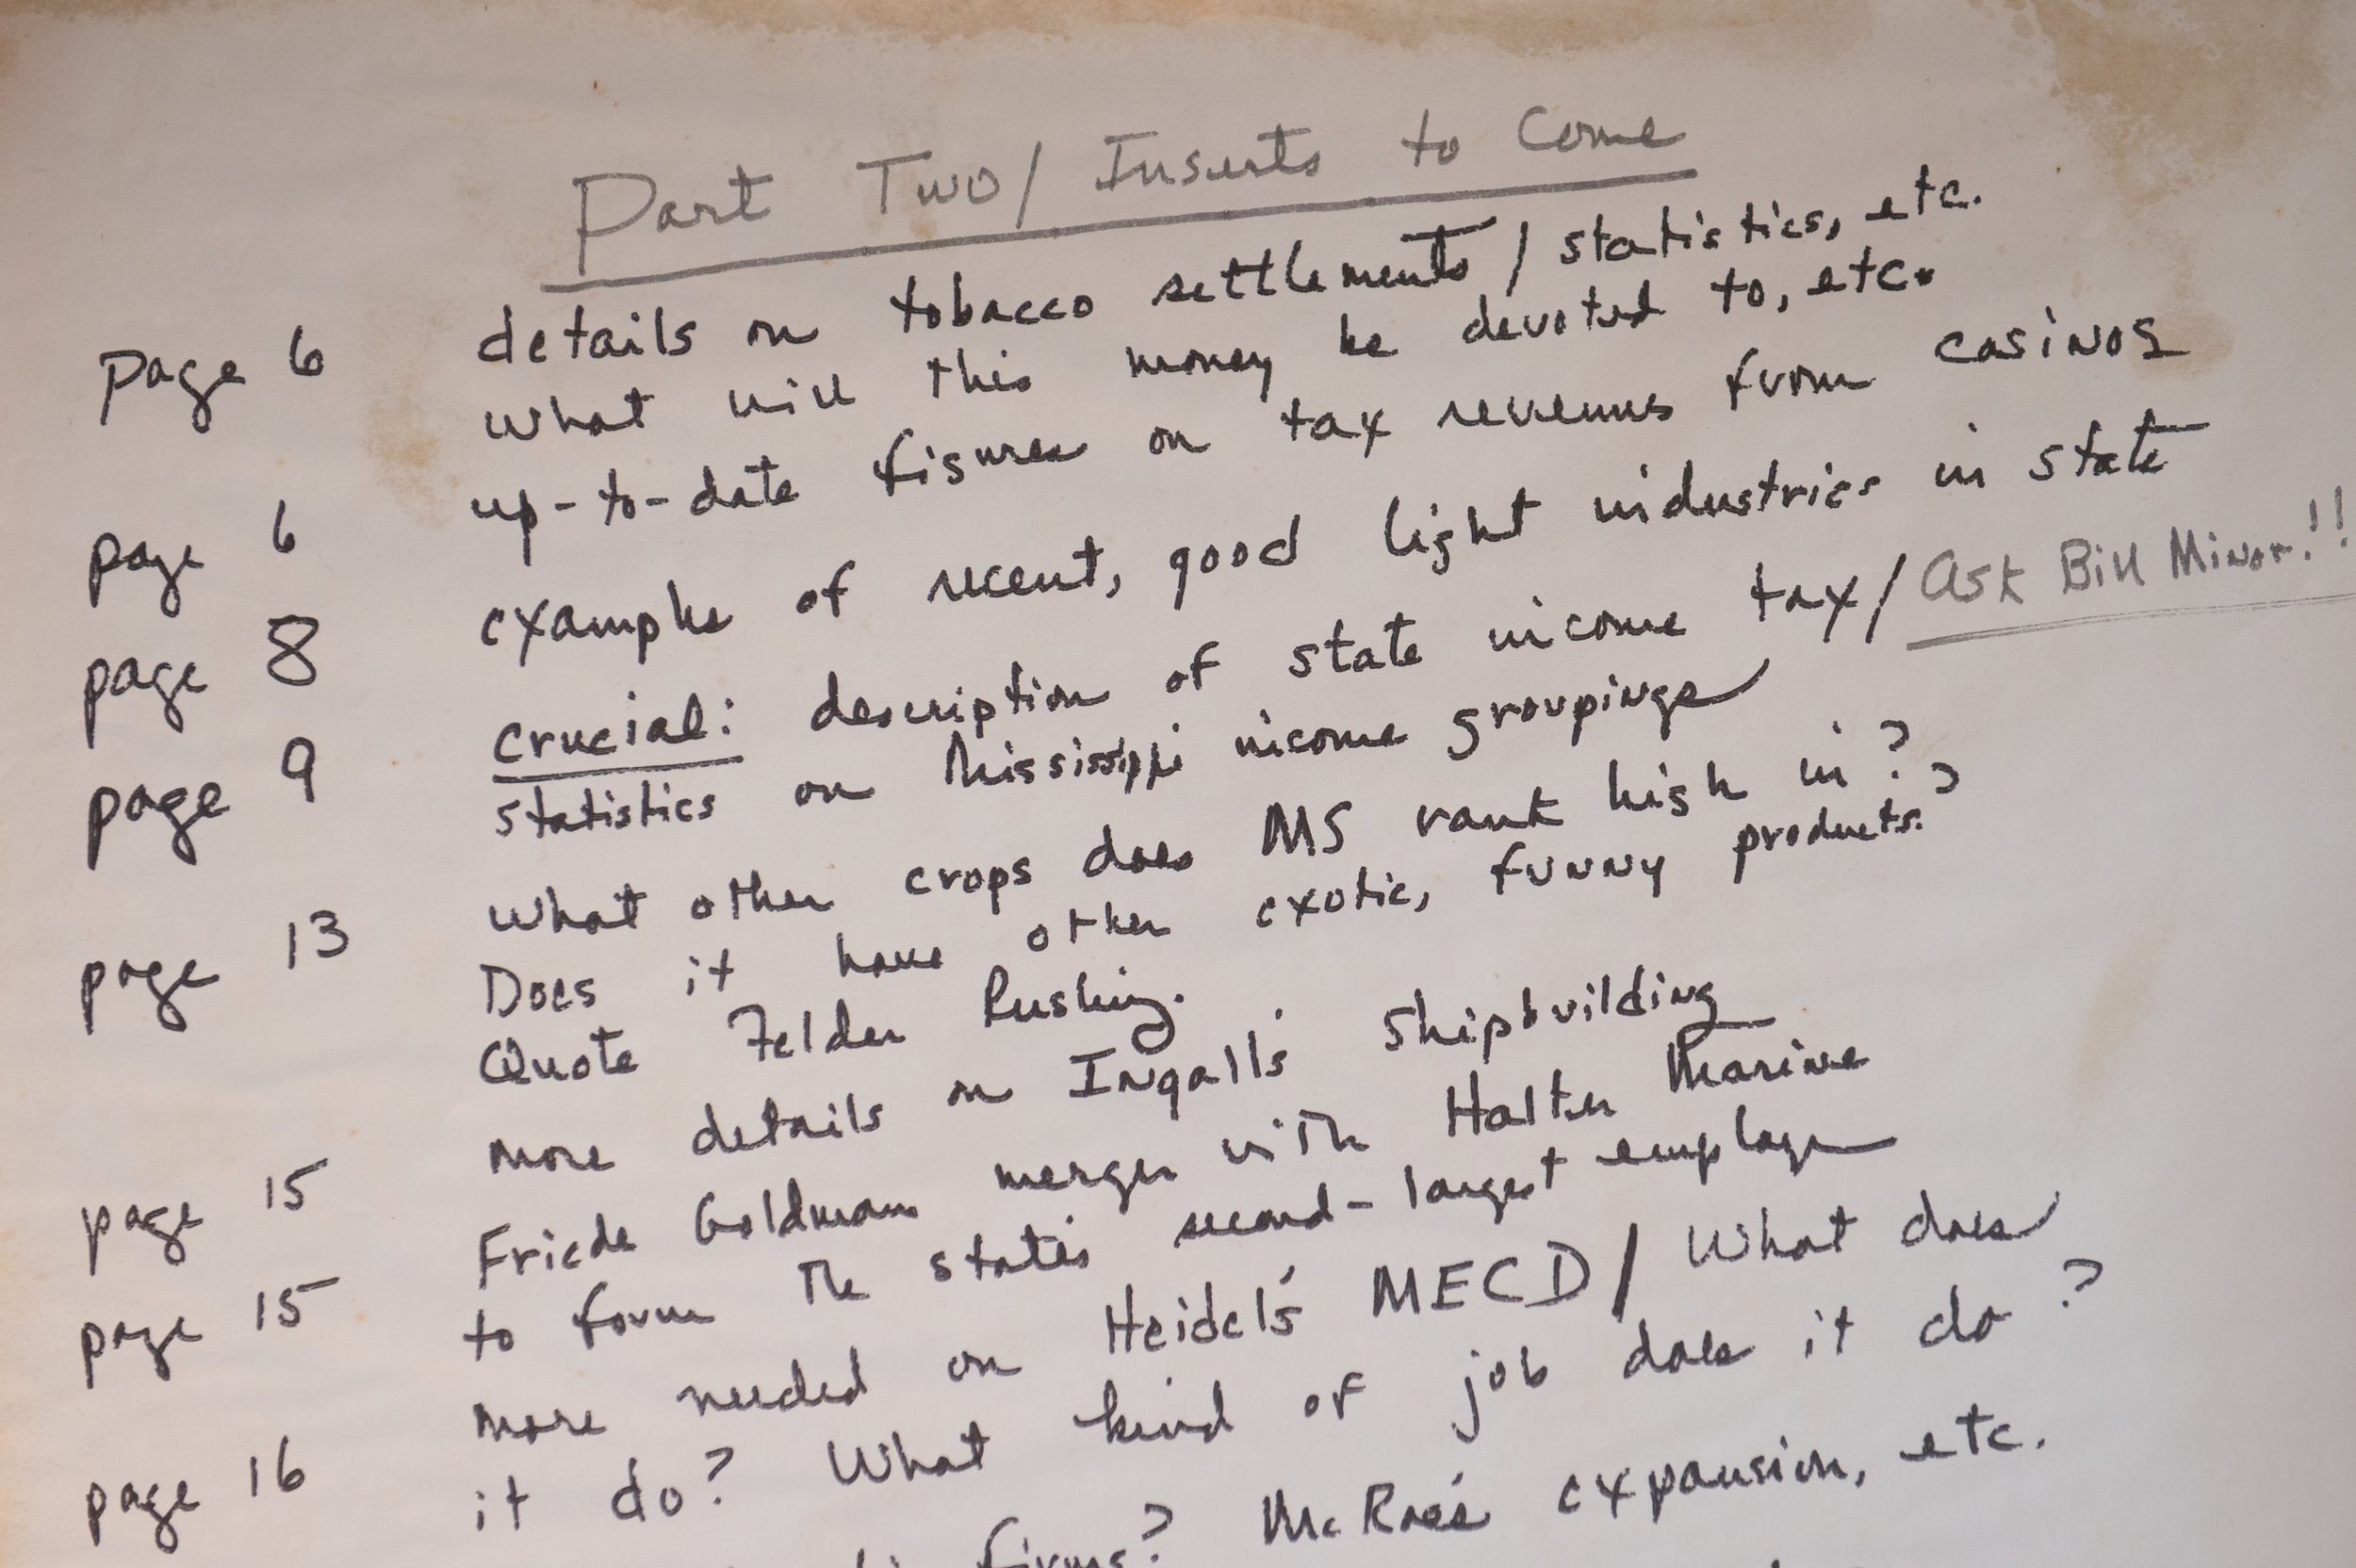 Part Two/ Inserts to Come
page 6 details on tobacco settlements / statistics, etc.
What will this money be devoted to, etc.
page 6 up-to-date figures on tax revenues from casinos
page 8 examples of recent, good light industries in state
page 9 crucial: description of state income tax/ Ask Bill Minor!!
statistics on Mississippi income groupings
page 13 What other crops does MS rank high in?
Does it have other exotic, funny products?
Quote Felder Rushing.
page 15 more details on Ingalls' Shipbuilding
page 15 Friede Goldman merger with Halter Marine
to form the state's second-largest employer
page 16 more needed on Heidel's MECD/ What does
it do? What kind of job does it do?
firms? McRae's expansion, etc.